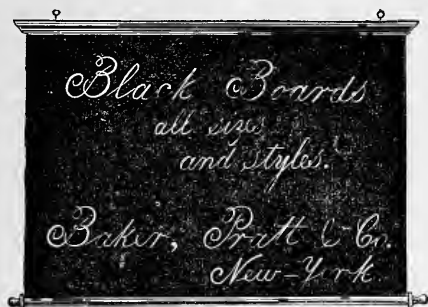 Black Boards
all sizes
and styles.
Baker, Pratt & Co.
New-York.